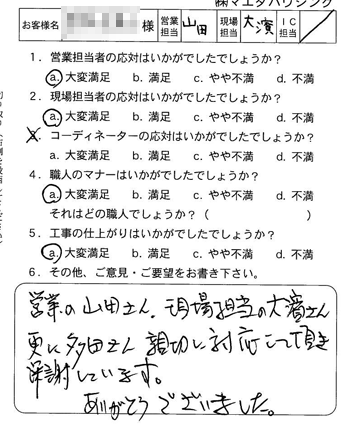 ㈱マエダハウジング
お客様名 様 営業担当 山田 現場担当 大濱 IC担当
1．営業担当者の応対はいかがでしたでしょうか？
a. 大変満足 b. 満足 c. やや不満 d. 不満
2．現場担当者の応対はいかがでしたでしょうか？
a. 大変満足 b. 満足 c. やや不満 d. 不満
3．コーディネーターの応対はいかがでしたでしょうか？
a. 大変満足 b. 満足 c. やや不満 d. 不満
4．職人のマナーはいかがでしたでしょうか？
a. 大変満足 b. 満足 c. やや不満 d. 不満
それはどの職人でしょうか？（ ）
5．工事の仕上がりはいかがでしたでしょうか？
a. 大変満足 b. 満足 c. やや不満 d. 不満
6．その他、ご意見・ご要望をお書き下さい。
営業の山田さん、現場担当の大濱さん
更に多田さん 親切に対応して頂き
感謝しています。
ありがとうございました。